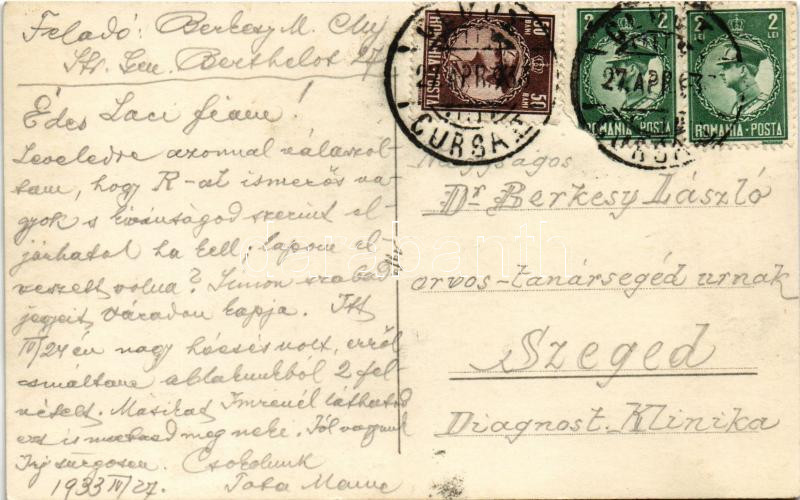 Feladó: Berkesy M. Cluj
Str. Gen. Berthelot 27
Édes Laci fiam!
Leveledre azonnal válaszol-
tam, hogy R-at ismerős va-
gyok s kívánságod szerint el-
járhatol ha kell, lapom el-
veszett volna? Simon szabad
jegyeit Váradon kapja. Itt
IV/24 én nagy hóesés volt, erről
csináltam ablakunkból 2 fel-
vételt. Másikat Imrénél láthatod
ezt is mutasd meg neki. Jól vagyunk
Írj sürgősen. Csókolunk
1933 IV/27. Tata Mama
50 BANI
ROMANIA·POSTA
50 BANI
2 LEI
2 LEI
ROMANIA·POSTA
2 LEI
2 LEI
ROMANIA·POSTA
27 APR
CURSA
27 APR
Nagyságos
Dr Berkesy László
orvos-tanársegéd urnak
Szeged
Diagnost. Klinika